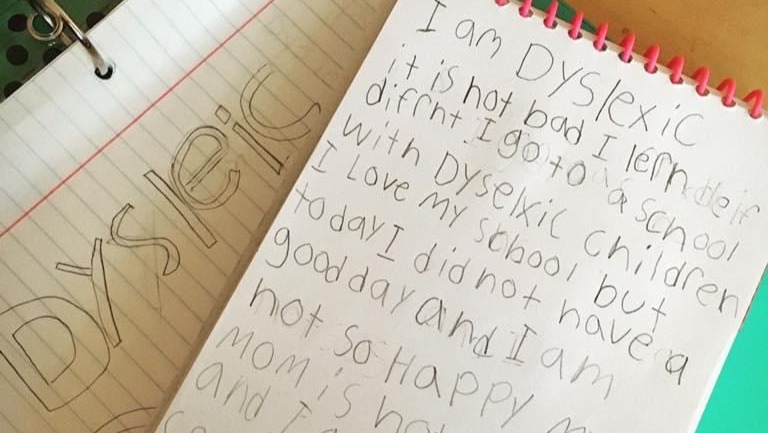 DYSleic
I am DYSlexic
it is not bad I lern deif
difrnt I go to a school
with DYselxic children
I Love My school but
today I did not have a
good day and I am
not so Happy
MOM is
and I